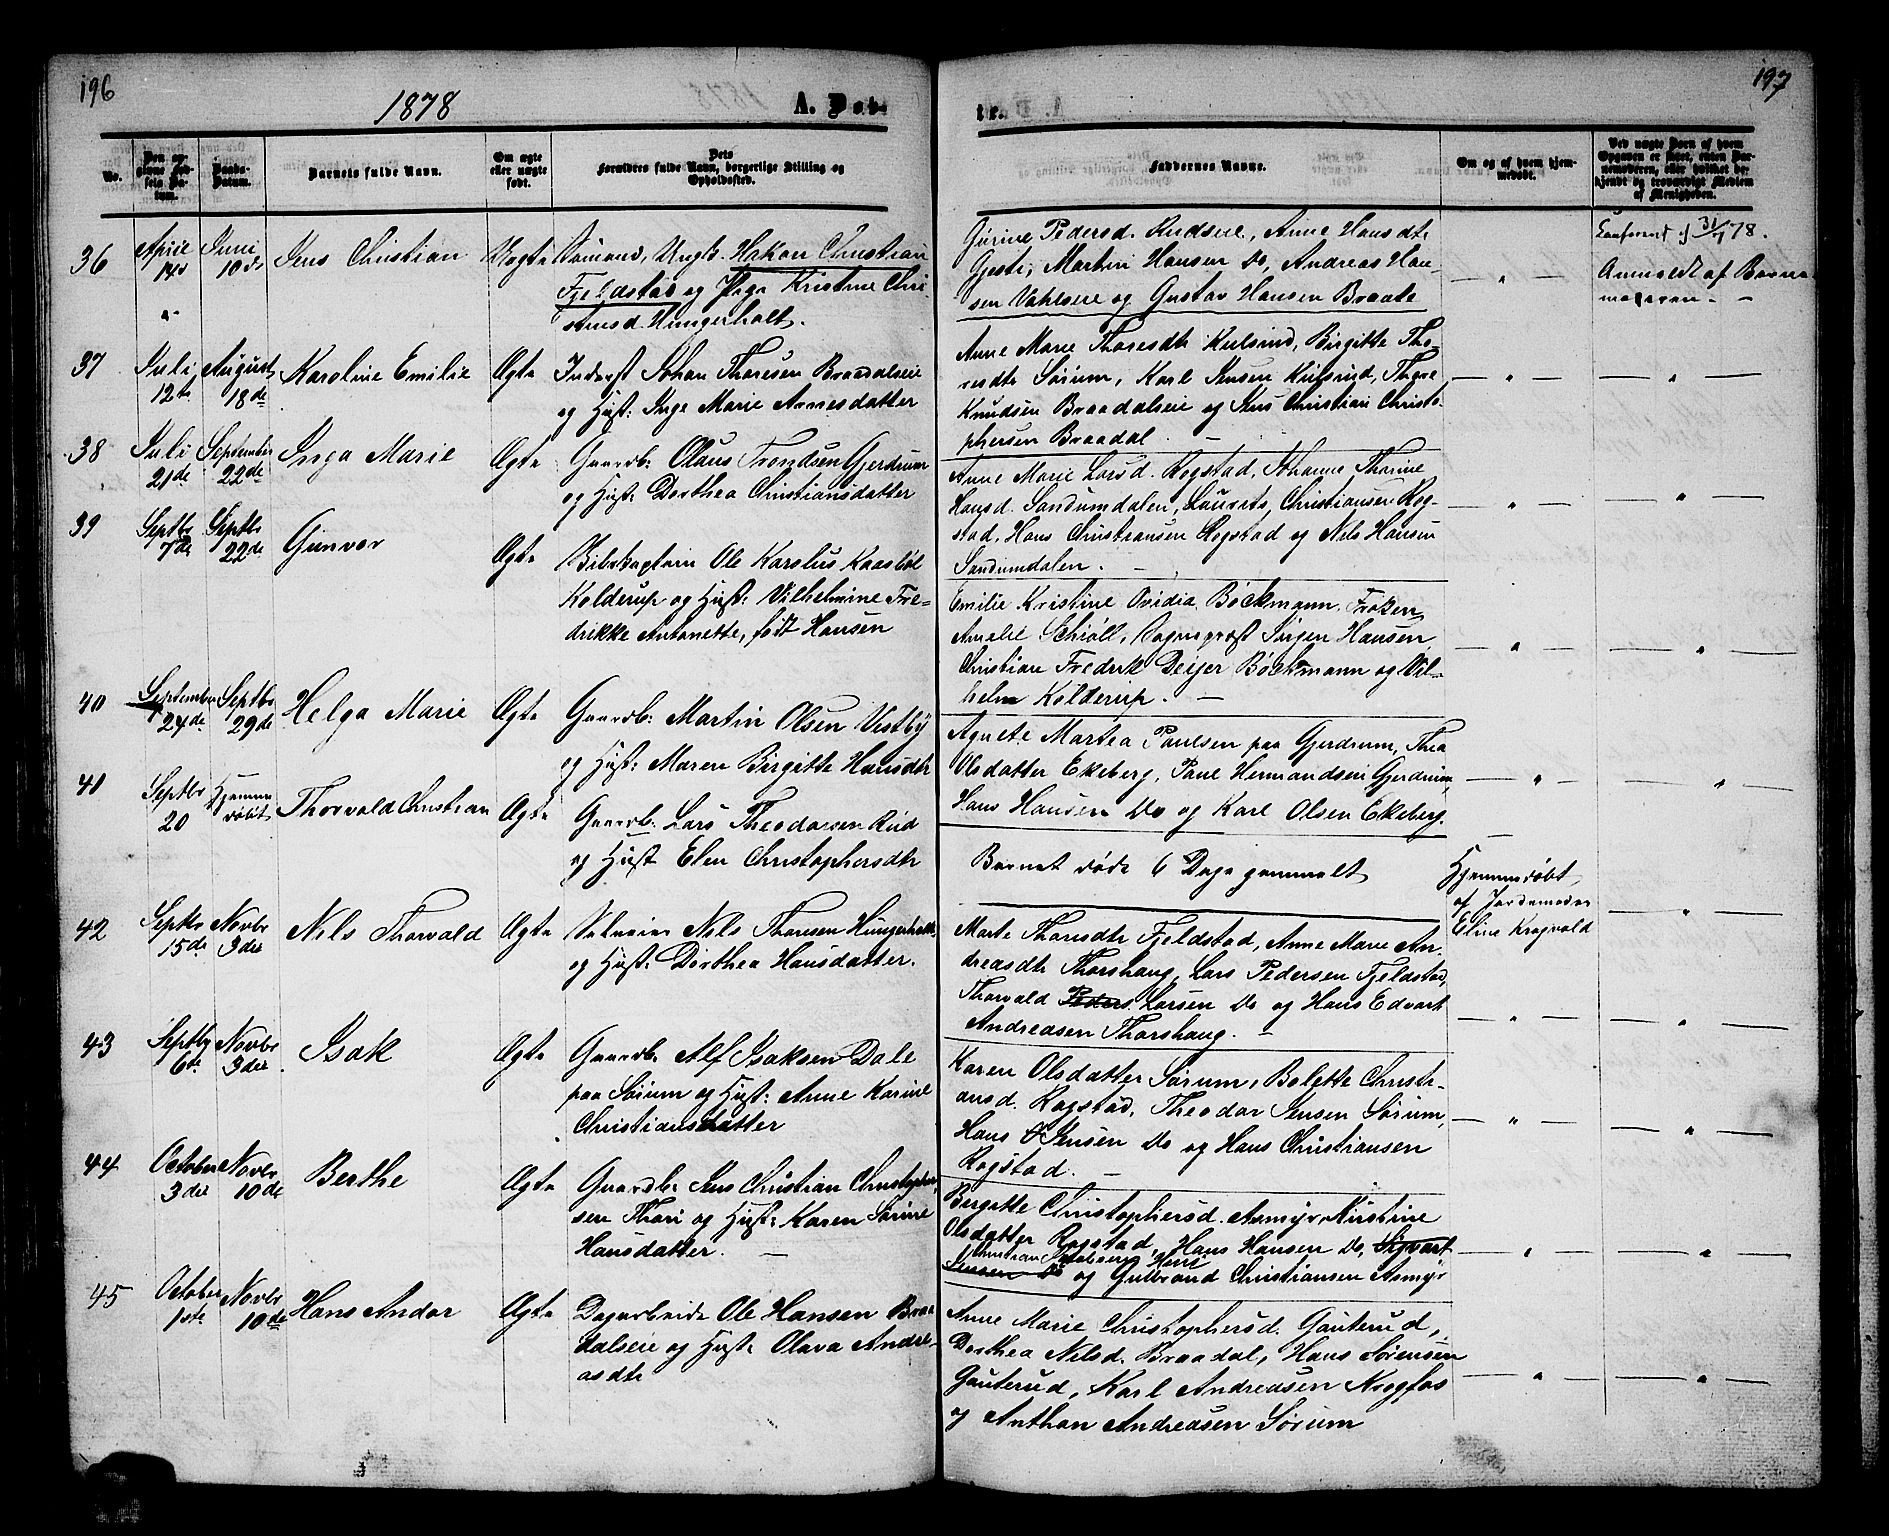 196
1878
A. Døb-
No.
Den opgivne Fødsels Datum.
Daabs-Datum.
Barnets fulde Navn.
Om ægte eller uægte født.
Dets Forældres fulde Navn, borgerlige Stilling og Opholdssted.
36
April 14
Juni 10de
Jens Christian
Uægte
Hakon Christian
Fjeldstad og Kristine Chri-
stensd. Hungerholt.
37
Juli 12te
August 18de
Karoline Emilie
Ægte
Inderst Johan Thoresen Braadalseie
og Hust: Inge Marie Arnesdatter
38
Juli 21de
September 22de
Inga Marie
Ægte
Gaardb: Olaus Trondsen Gjerdrum
og Hust: Dorthea Christiansdatter
39
Septbr 7de
Septbr 22de
Gunvor
Ægte
Ole Karolus Kaasbøl
Kolderup og Hust: Vilhelmine Fre-
drikke Antonette, født Hansen
40
September 24de
Septbr 29de
Helga Marie
Ægte
Gaardb: Martin Olsen Vestby
og Hust: Maren Birgitte Hansdtr
41
Septbr 20
Hjemmedøbt
Thorvald Christian
Ægte
Gaardb: Lars Theodorsen Rud
og Hust Elen Christophersdtr
42
Septbr 15de
Novbr 3die
Nils Thorvald
Ægte
Nils Thorsen Hungerholt
og Hust: Dorthea Hansdatter.
43
Septbr 6te
Novbr 3die
Isak
Ægte
Gaardb: Alf Isaksen Dale
paa Sørum og Hust: Anne Karine
Christiansdatter
44
October 3die
Novbr 10de
Berthe
Ægte
Gaardb: Jens Christian Christopher-
sen Thori og Hust: Karen Sørine
Hansdatter.
45
October 1ste
Novbr 10de
Hans Andor
Ægte
Dagarbeide Ole Hansen Braa-
dalseie og Hust: Olava Andre-
asdtr
197
te.
Faddernes Navne.
Om og af hvem hjemmedøbt.
Ved uægte Børn af hvem Opgaven er skeet, enten Barnemoderen, eller hvilket bekjendt og troværdigt Medlem af Menigheden.
Gurine Pedersd. Rudseie, Anne Hansdtr
Martin Hansen Do, Andreas Han-
sen Vahlseie og Gustav Hansen Braate
Anmeldt af Barne-
moderen
Anne Marie Thoresdtr Kulsrud, Birgitte Tho-
resdtr Sørum, Karl Jensen Kulsrud, Thore
Knudsen Braadalseie og Jens Christian Christo-
phersen Braadal.
Anne Marie Larsd. Rogstad, Johanne Thorine
Hansd. Sandumdalen, Laurits Christiansen Rog-
stad, Hans Christiansen Rogstad og Nils Hansen
Sandumdalen.
Emilie Kristine Ovidia Bøckmann, Frøken
Amalie Schiøll, Sogneprest Jørgen Hansen,
Christian Fredrik Deijer Bøckmann og Vil-
helm Kolderup.
Agnete Martea Paulsen paa Gjerdrum, Thea
Olsdatter Ekeberg, Paul Hermandsen Gjerdrum,
Hans Hansen Do og Karl Olsen Ekeberg.
Barnet døde 6 Dage gammelt
Hjemmedøbt
af Jordemoder
Eline Krogvold
Marte Thorsdtr Fjeldstad, Anne Marie An-
dreasdtr Thorshaug, Lars Pedersen Fjeldstad,
Thorvald Peders. Larsen Do og Hans Edvart
Andreasen Thorshaug.
Karen Olsdatter Sørum, Bolette Christi-
ansd. Rogstad, Theodor Jensen Sørum,
Hans Jensen Do og Hans Christiansen
Rogstad.
Bergitte Christophersd. Asmyr, Kirstine
Olsdatter Rogstad, Hans Hansen Do, Sigvart
Jensen Do og Gulbrand Christiansen Asmyr
Anne Marie Christophersd. Gauterud,
Dorthea Nilsd. Braadal, Hans Sørensen
Gauterud, Karl Andreasen Krogfos
og Anthon Andreasen Sørum